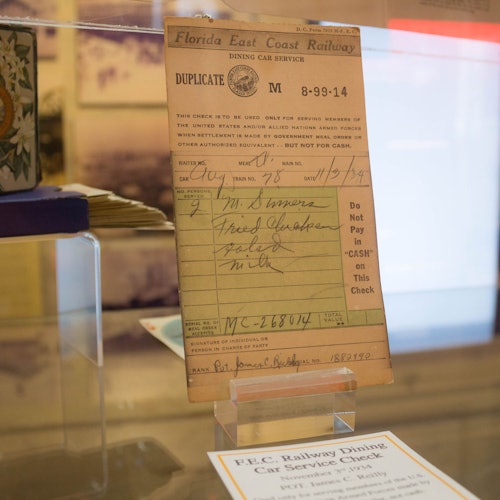 D. C. Form 7013
Florida East Coast Railway
DINING CAR SERVICE
DUPLICATE M 8-99-14
THIS CHECK IS TO BE USED ONLY FOR SERVING MEMBERS OF
THE UNITED STATES AND/OR ALLIED NATIONS ARMED FORCES
WHEN SETTLEMENT IS MADE BY GOVERNMENT MEAL ORDER OR
OTHER AUTHORIZED EQUIVALENT - BUT NOT FOR CASH.
WAITER NO. MEAL D. MAIN NO.
CAR TRAIN NO. 78 DATE
NO. PERSONS
SERVED
2 M. Dinners
Fried Chicken
Salad
Milk
Do
Not
Pay
in
"CASH"
on
This
Check
SERIAL NO. OF
MEAL ORDER
MC-268014
TOTAL
VALUE
SIGNATURE OF INDIVIDUAL OR
PERSON IN CHARGE OF PARTY
RANK Pvt. James C. Reilly SERIAL NO.
F.E.C. Railway Dining
Car Service Check
November 3rd, 1934
POT. James C. Reilly
Used only for serving members of the U.S.
armed forces made by